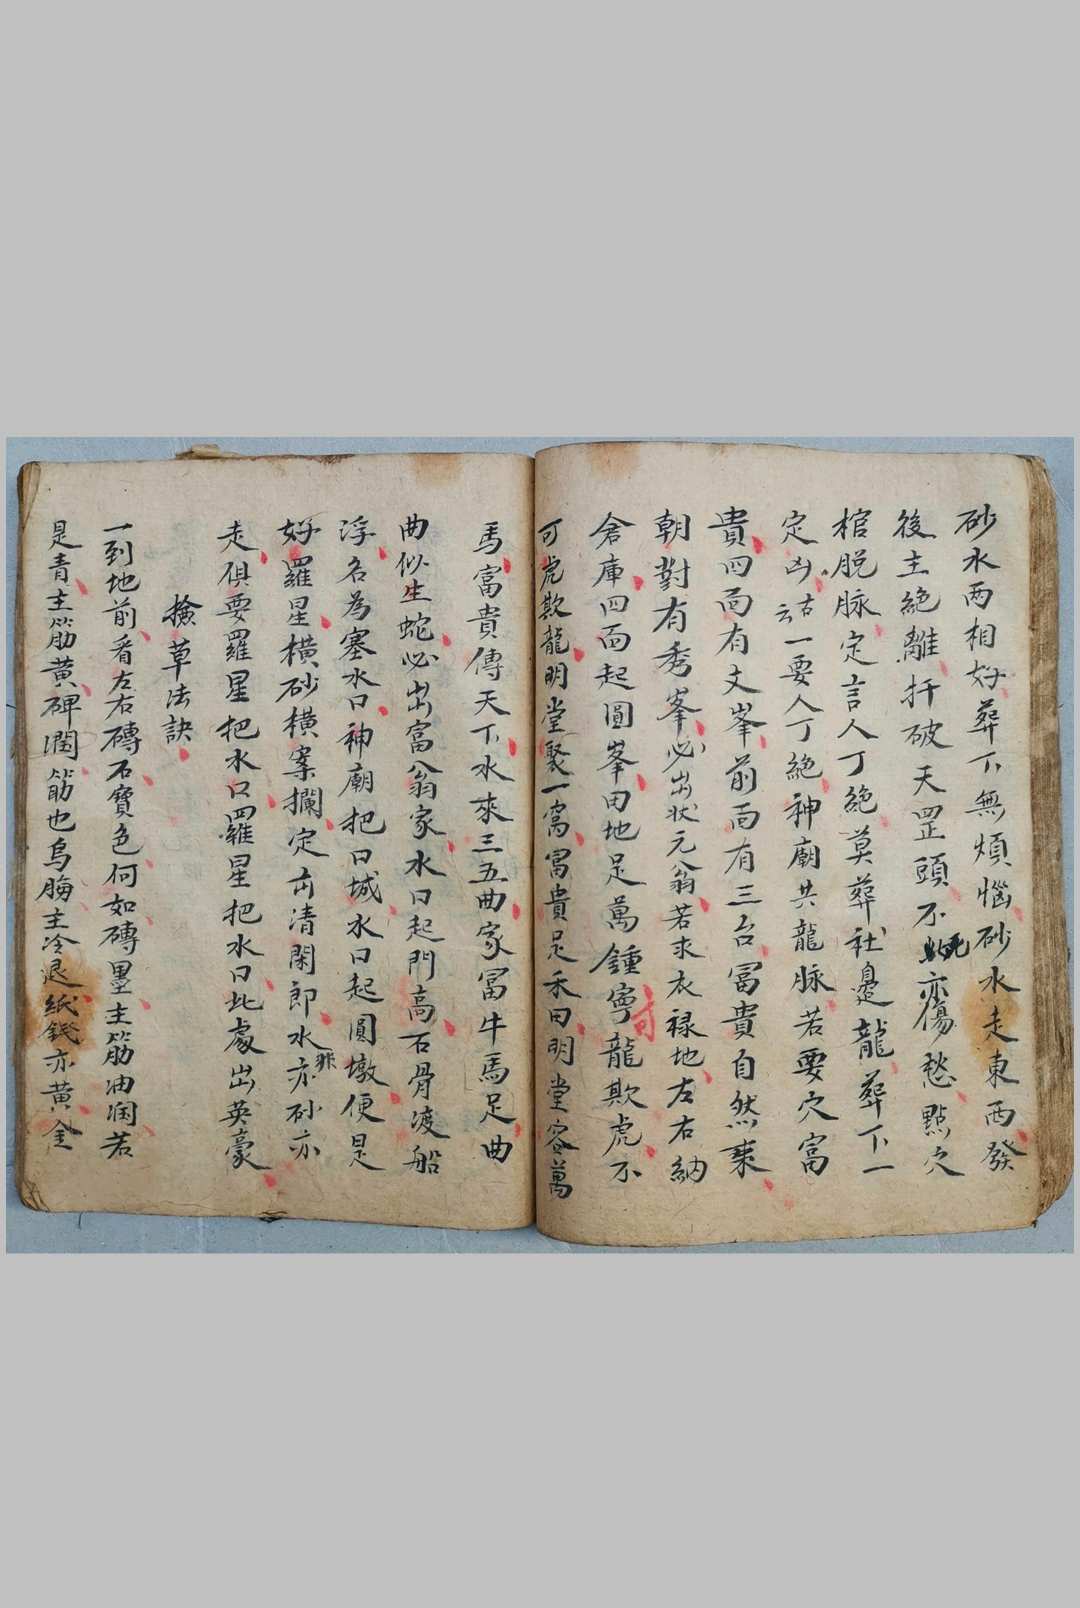 砂水两相好葬下無煩惱砂水走東西發
後主絕離扦破天罡頭不死亦傷愁點穴
棺脱脉定言人丁絕莫葬社邊龍葬下一
定凶古云一要人丁絕神廟共龍脉若要穴富
貴四面有文峯前面有三台冨貴自然来
朝對有秀峯必出状元翁若求衣禄地左右納
倉庫四面起圓峯田地足萬鍾寧可龍欺虎不
可虎欺龍明堂聚一窩富貴足禾田明堂容萬
馬富貴傳天下水來三五曲家冨牛馬足曲
曲似生蛇必出富翁家水口起門高石骨渡船
浮名為塞水口神廟把口城水口起圓墩便是
好羅星横砂横案攔定出清閑郎水亦砂亦
走俱要羅星把水口羅星把水口此處出英豪
撿草法訣
一到地前看左右磚石寳色何如磚墨主筋油润若
是青主筋黄碑潤筋也烏腸主冷退紙錢亦黄金